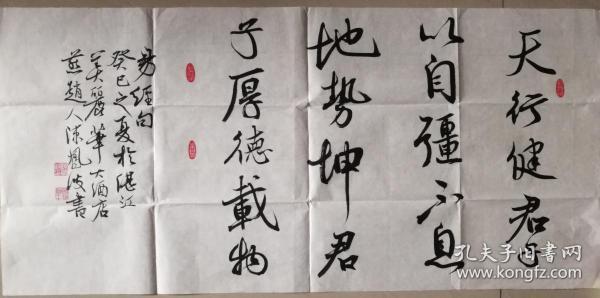 天行健君子
以自彊不息
地势坤君
子厚德載物
易經句
癸巳之夏於湛江
美麗華大酒店
燕趙人陳鳳波書
孔夫子旧书网
www.kongfz.com